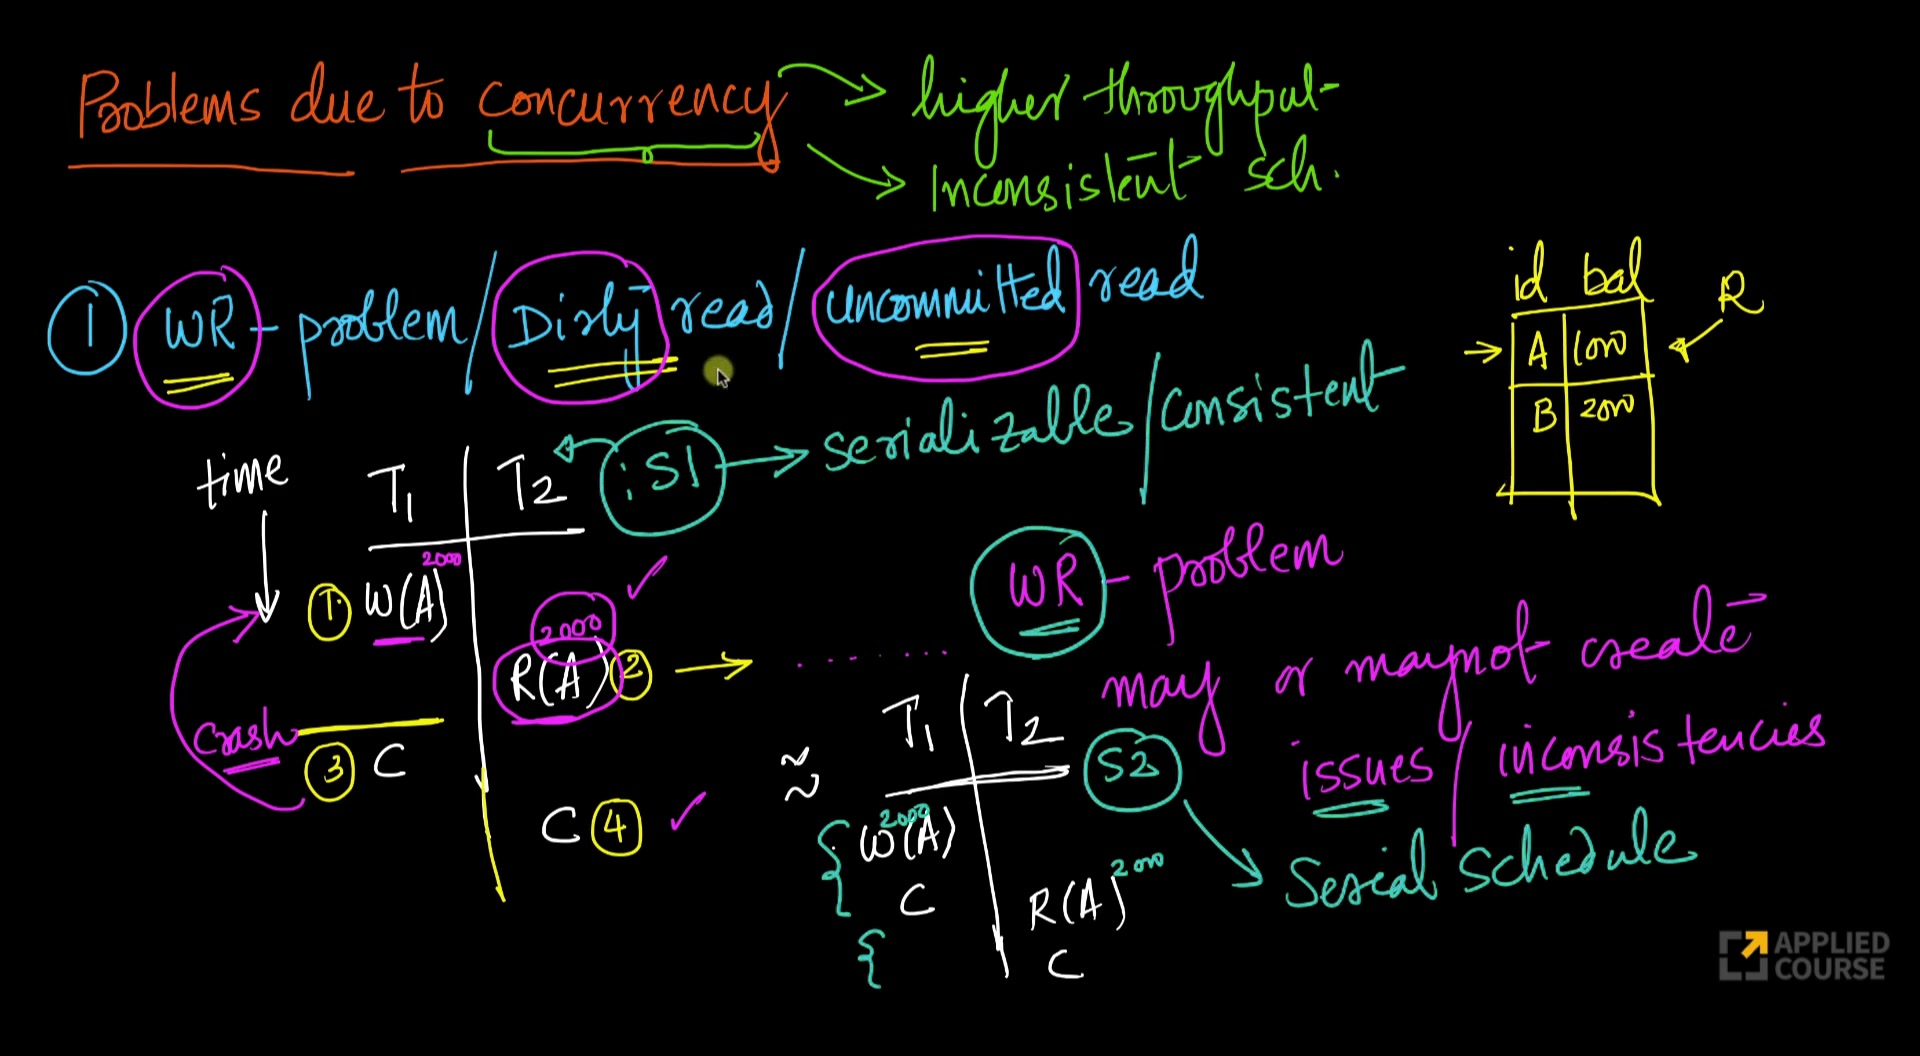 Problems due to concurrency
higher throughput
Inconsistent sch.
1 WR - problem / Dirty read / uncommitted read
id bal
R
A 1000
B 2000
: S1 → serializable / consistent
time T1 T2
2000
1. W(A)
2000
R(A) 2 → .......
Crash
3 C
C 4
WR - problem
may or may not create
issues / inconsistencies
≈
T1 T2 S2
2000
W(A)
C
R(A) 2000
C
Serial schedule
APPLIED
COURSE